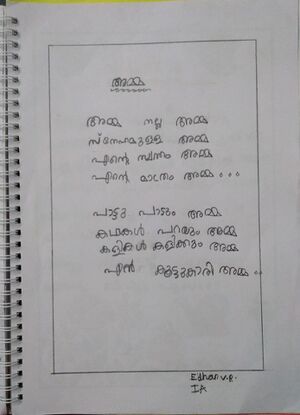 അമ്മ
അമ്മ നല്ല അമ്മ
സ്നേഹമുള്ള അമ്മ
എന്റെ സ്വന്തം അമ്മ
എന്റെ മാത്രം അമ്മ...
പാട്ടു പാടും അമ്മ
കഥകൾ പറയും അമ്മ
കളികൾ കളിക്കും അമ്മ
എൻ കൂട്ടുകാരി അമ്മ..
Edhan v.p.
IA